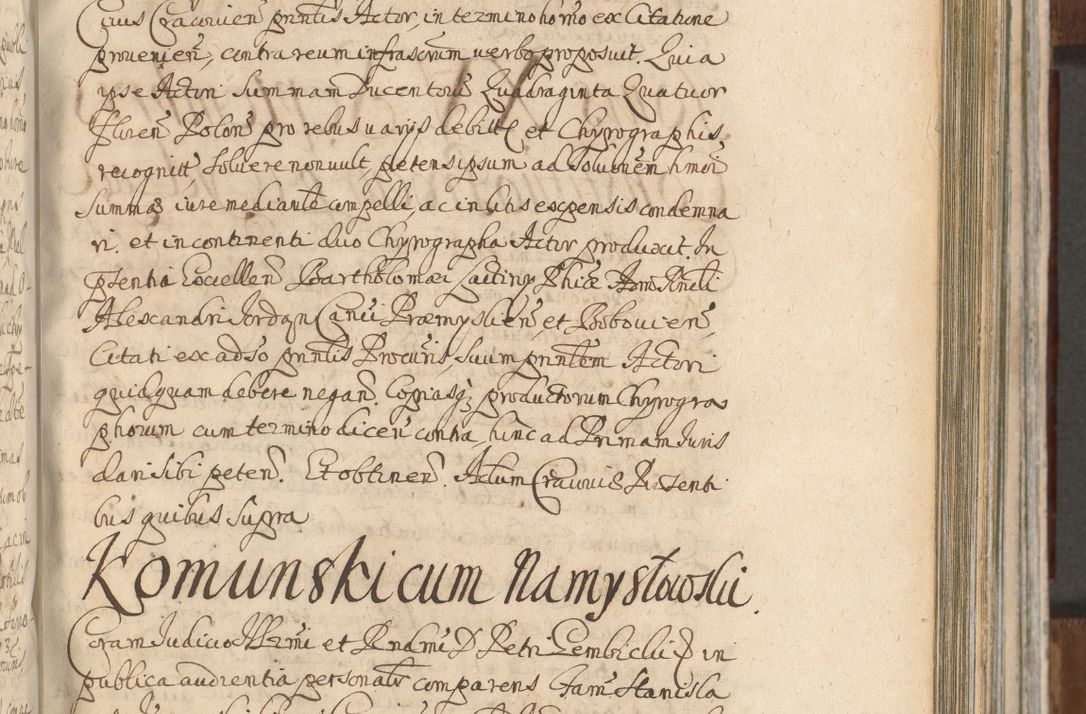 Civis Cracovien̄ pn̄ntis Actor, in termino hōmo ex Citatione
provenien̄, contra reum infrascrūm verbo proposuit. Quia
ipse Actori Summam Ducentorū Quadraginta Quatuor
Floren̄ Polon̄ pro rebus varijs debitt et Chyrographis
recognitt, solvere non vult, petens ipsum ad solvōnem hm̄oi
Summæ iure mediante compelli, ac in litis expensis condemna
ri. et incontinenti duo Chyrographa Actor produxit. In
pn̄tia Excellen̄ Bartholomæi Phiæ
Alexandri Jordan Canci Præmyslien̄, et Bobovien̄,
Citati ex adso pn̄ntis Procuris, suum pn̄ntem Actori
quidquam debere negan̄. Copiasq; productorum Chyrogra
phorum cum termino dicen̄ contra, hinc ad Primam Juris
dari sibi peten̄. Et obtinen̄. Actum Cracovia Præsenti
bus quibus supra
Komunski cum Namysłowski.
Coram Judicio Illrmi et Rndmi D Petri Gembicki in
publica audientia personalr comparens Fam Stanisla